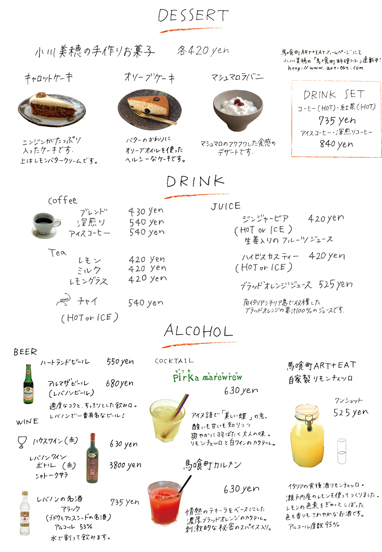 DESSERT
小川美穂の手作りお菓子 各420yen
馬喰町ART+EATホームページにて
キャロットケーキ
オリーブケーキ
マシュマロラバニ
ニンジンがたっぷり
入ったケーキです
上はレモンバタークリームです。
バターのかわりに
オリーブオイルを使った
ヘルシーなケーキです。
マシュマロのフワフワした食感の
デザートです。
DRINK SET
コーヒー(HOT)・紅茶(HOT)
735 yen
アイスコーヒー・深煎りコーヒー
840 yen
DRINK
Coffee
ブレンド 430 yen
深煎り 540 yen
アイスコーヒー 540 yen
Tea
レモン 420 yen
ミルク 420 yen
レモングラス 420 yen
チャイ 540 yen
(HOT or ICE)
JUICE
ジンジャービア 420 yen
(HOT or ICE)
生姜入りのフルーツジュース
ハイビスカスティー 420 yen
(HOT or ICE)
ブラッドオレンジジュース 525 yen
ブラッドオレンジの果汁100%のジュースです。
ALCOHOL
BEER
ハートランドビール 550 yen
アルマザビール 680 yen
(レバノンビール)
適度なコクと、すっきりとした飲み口。
レバノンで一番有名なビール!
WINE
ハウスワイン(赤) 630 yen
レバノンワイン
ボトル(赤) 3800 yen
シャトークサラ
レバノンの名酒 735 yen
アラック
(ブドウとアニスシードの名酒)
アルコール 53%
水で割って飲みます。
COCKTAIL
ピリカ
pirka marowrow
630 yen
アイヌ語で「美しい蝶」の意。
酸いも甘いも知りつつ
爽やかに羽ばたく大人の味。
リモンチェッロと白ワインのカクテル。
馬喰町カルメン
630 yen
情熱のテキーラをベースにした
濃厚ブラッドオレンジのカクテル。
刺激的な秘密のスパイス入り。
馬喰町ART+EAT
自家製リモンチェッロ
ワンショット
525 yen
イタリアの食後酒リモンチェッロ。
瀬戸内産のレモンを使ってつくりました。
アルコール度数 35%